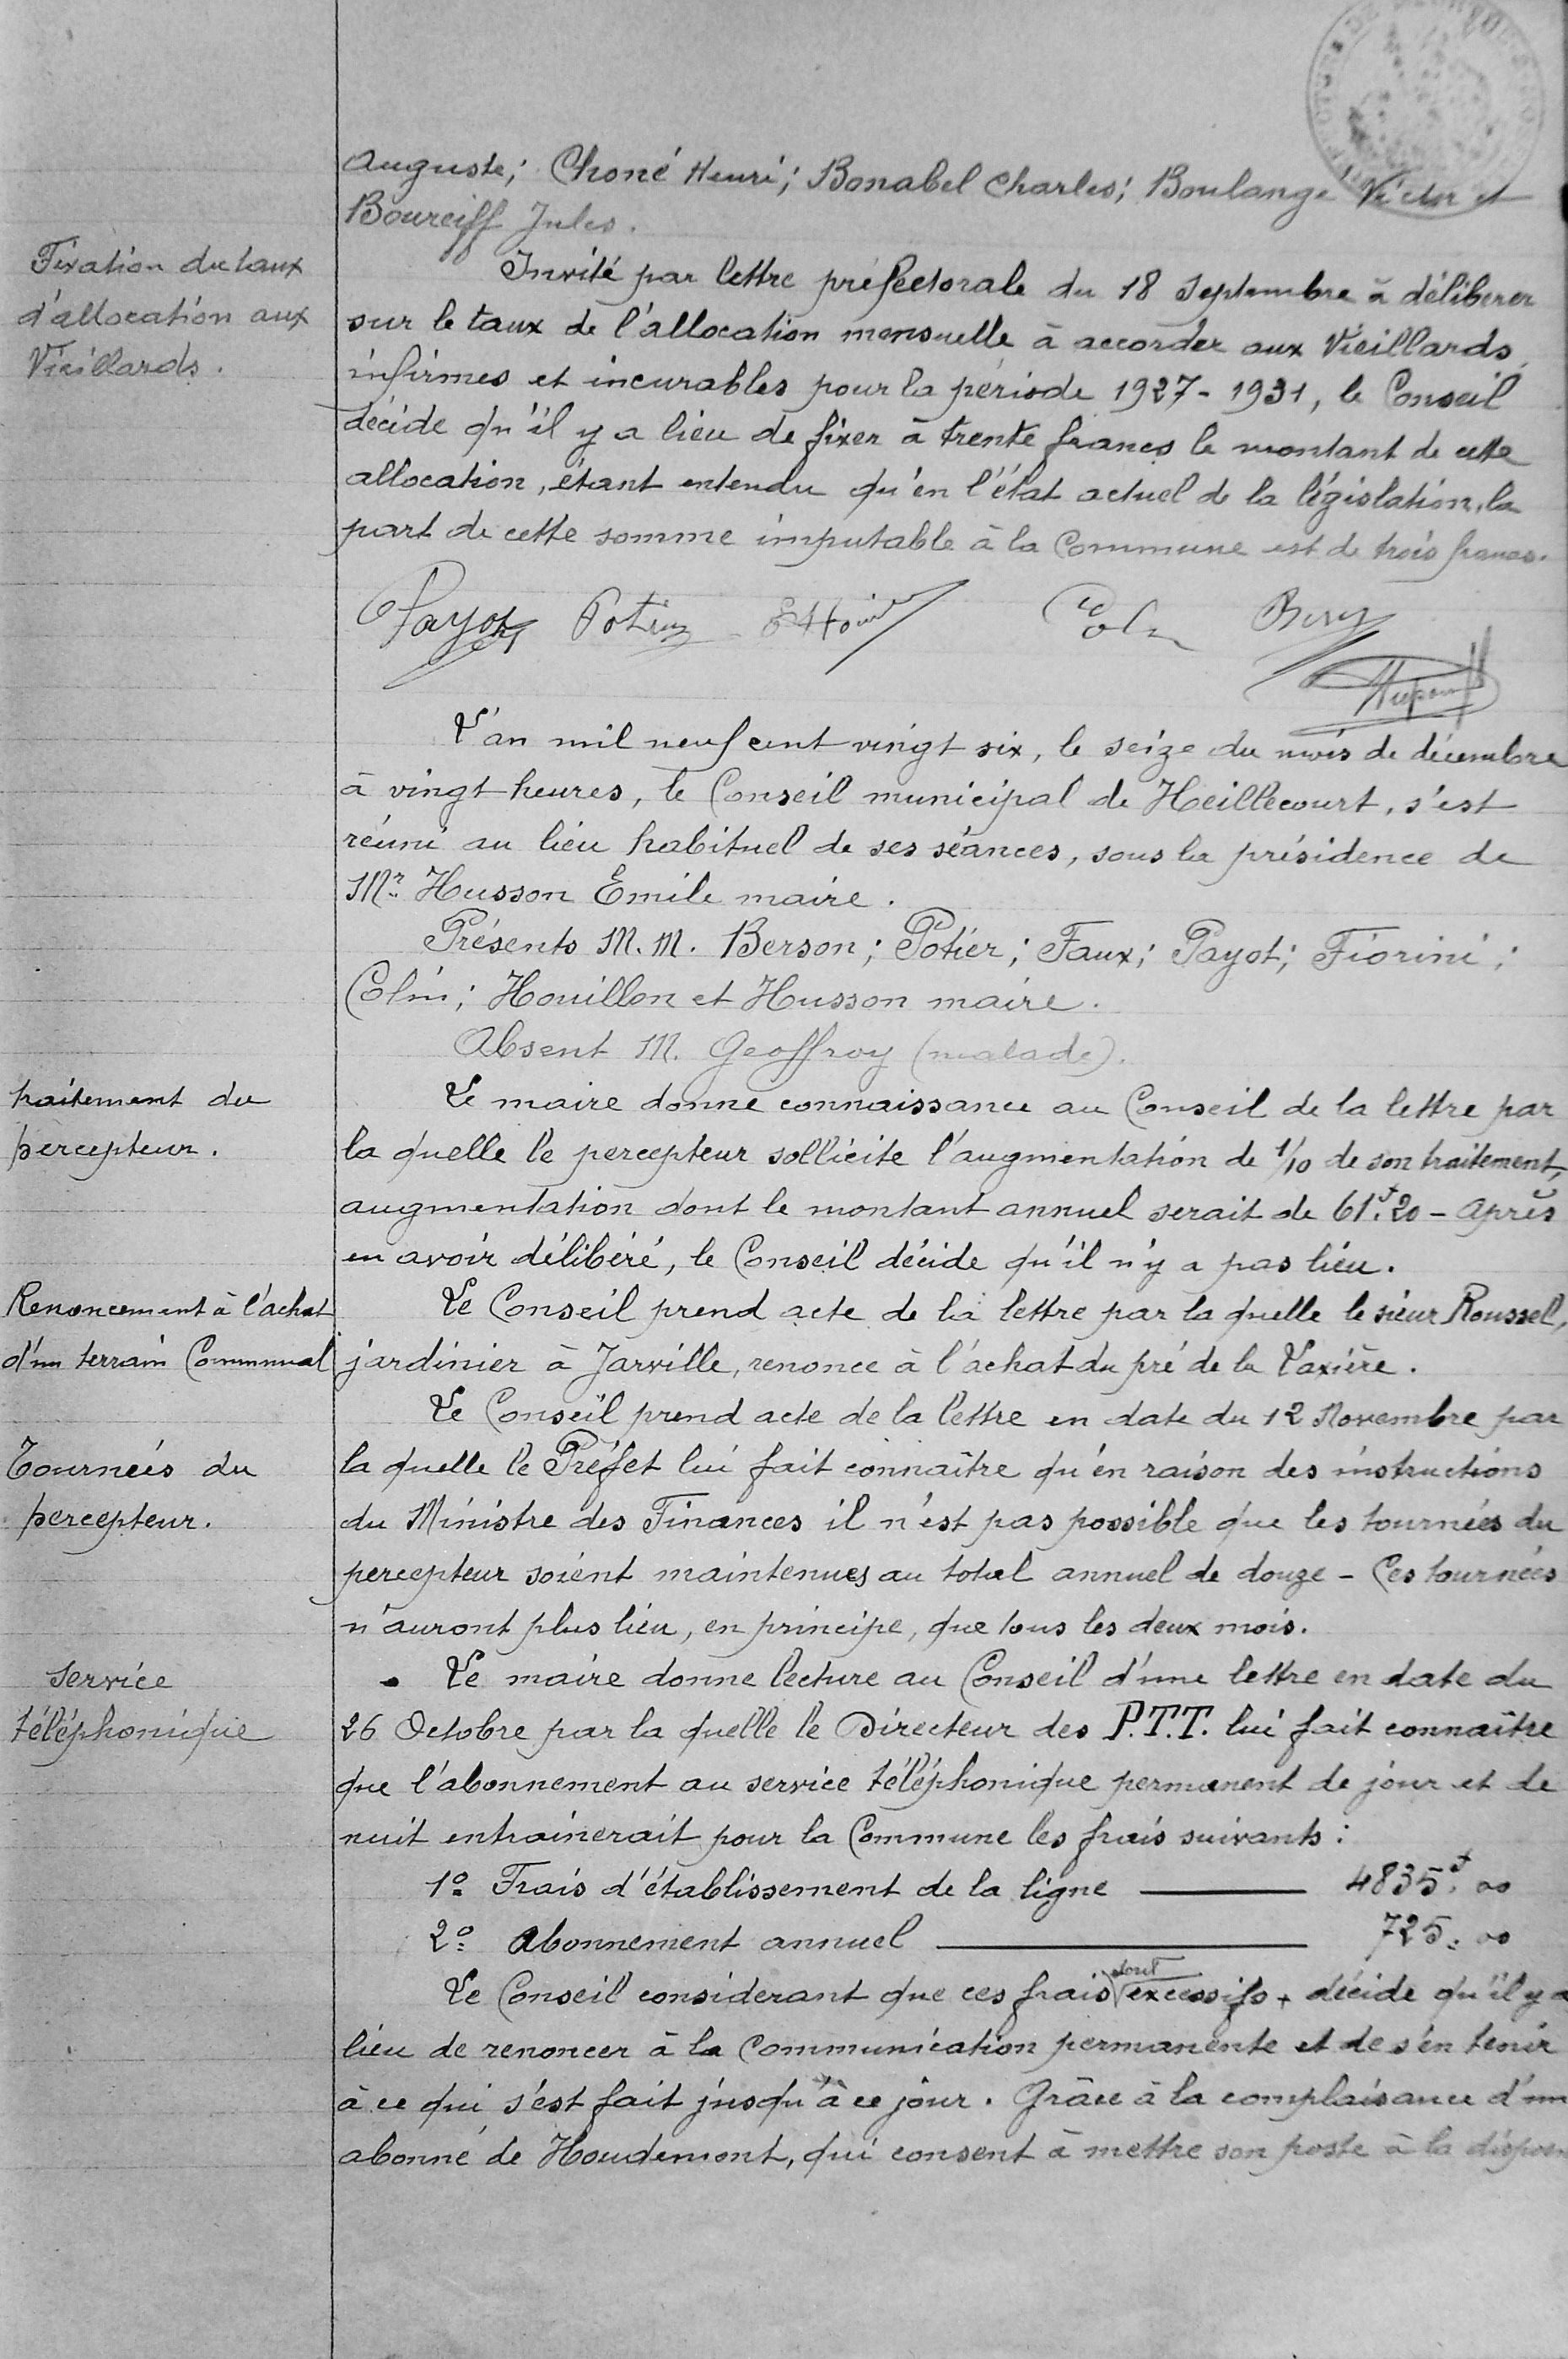 Auguste; Choné Henri; Bonabel Charles; Boulangé Victor et
Bourciff Jules.
Fixation du taux
d'allocation aux
Vieillards.
Invité par lettre préfectorale du 18 Septembre à déliberer
sur le taux de l'allocation mensuelle à accorder aux Vieillards,
infirmes et incurables pour la période 1927-1931, le Conseil
décide qu'il y a lieu de fixer à trente francs le montant de cette
allocation, étant entendu qu'en l'état actuel de la législation, la
part de cette somme imputable à la Commune est de trois francs.
Payot
L'an mil neuf cent vingt six, le seize du mois de décembre
à vingt heures, le Conseil municipal de Heillecourt, s'est
réuni au lieu habituel de ses séances, sous la présidence de
Mr Husson Emile maire.
Présents M.M. Berson; Potier; Faux; Payot; Fiorini;
Colin; Houillon et Husson maire.
Absent M. Geoffroy (malade).
traitement du
percepteur.
Le maire donne connaissance au Conseil de la lettre par
la quelle le percepteur sollicite l'augmentation de 1/10 de son traitement,
augmentation dont le montant annuel serait de 61f.20 - Après
en avoir délibéré, le Conseil décide qu'il n'y a pas lieu.
Renoncement à l'achat
d'un terrain Communal
Le Conseil prend acte de la lettre par la quelle le sieur Roussel,
jardinier à Jarville, renonce à l'achat du pré de la Taxière.
Tournées du
percepteur.
Le Conseil prend acte de la lettre en date du 12 Novembre par
la quelle le Préfet lui fait connaître qu'en raison des instructions
du Ministre des Finances il n'est pas possible que les tournées du
percepteur soient maintenues au total annuel de douze - Ces tournées
n'auront plus lieu, en principe, que tous les deux mois.
Service
téléphonique
Le maire donne lecture au Conseil d'une lettre en date du
26 Octobre par la quelle le Directeur des P.T.T. lui fait connaître
que l'abonnement au service téléphonique permanent de jour et de
nuit entrainerait pour la Commune les frais suivants:
1º Frais d'établissement de la ligne — 4835f.00
2º Abonnement annuel — 725.00
Le Conseil considerant que ces frais sont excessifs, décide qu'il y a
lieu de renoncer à la communication permanente et de s'en tenir
à ce qui s'est fait jusqu'à ce jour. Grâce à la complaisance d'un
abonné de Houdemont, qui consent à mettre son poste à la dispos